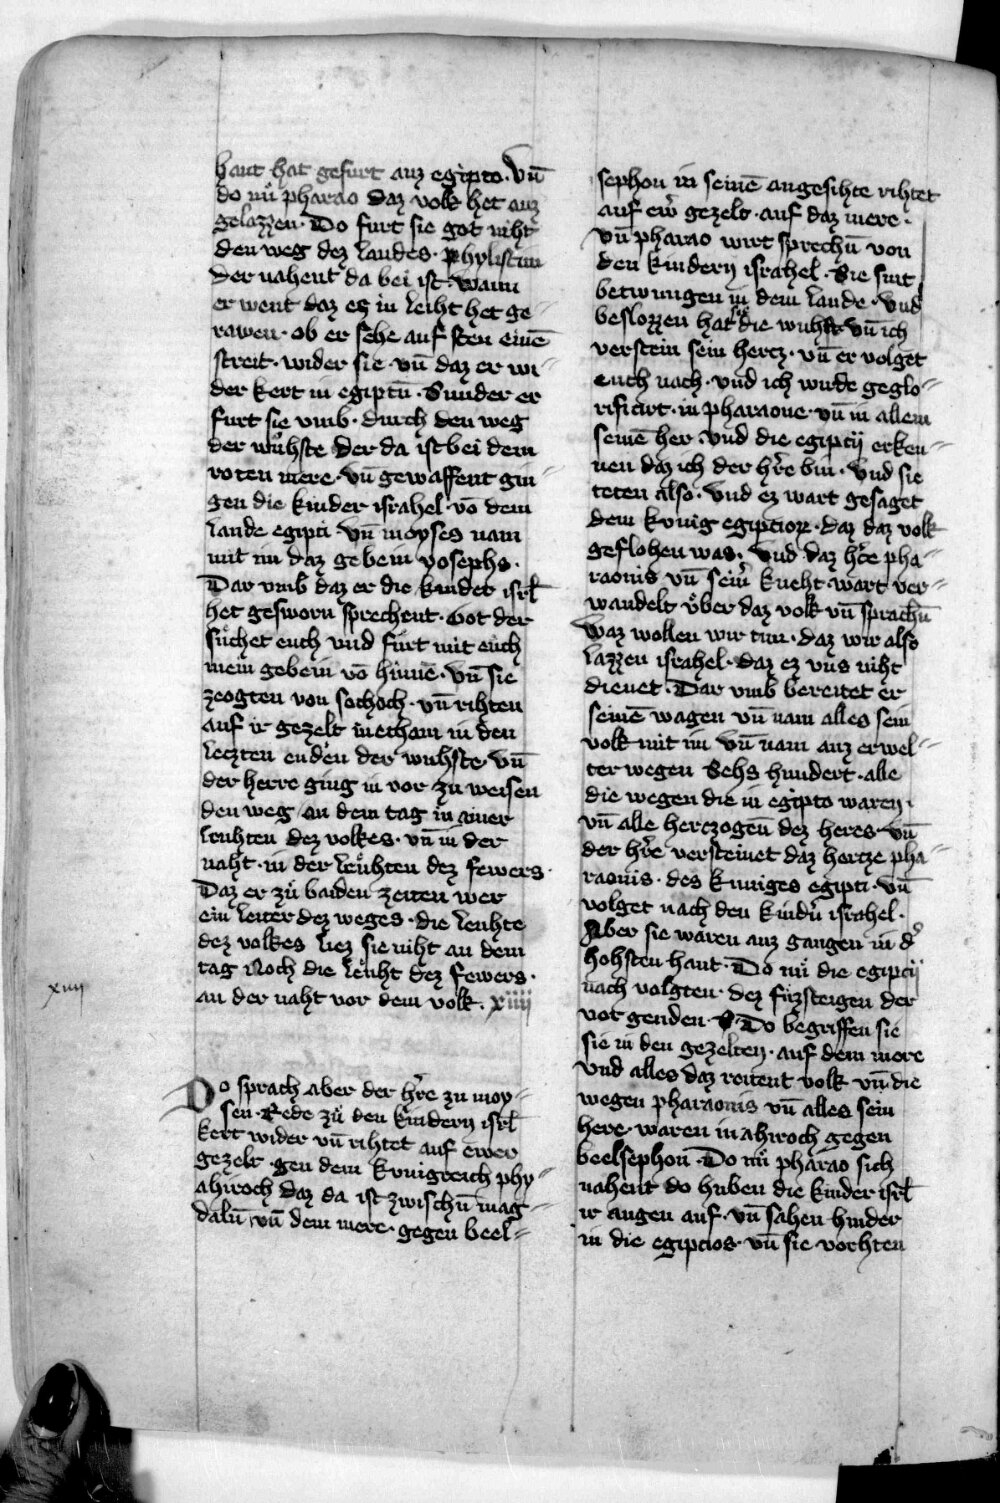 hant hat gefurt auz egipto · vn̄
do nuͦ pharao daz volk het auz
gelazzen · Do furt sie got niht
den weg dez landes · phylistim
der nahent da bei ist · wann
er went daz es in leiht het ge⸗
rawen · ob er sehe auf sten einē
streit · wider sie · vn̄ daz er wi⸗
der kert in egiptū · Sunder er
furt sie vmb · durch den weg
der wuͤhste der da ist bei dem
roten mere · vn̄ gewaffent gin⸗
gen die kinder israhel · vō dem
lande egipti · vn̄ moyses nam
mit im daz gebein yosephs ·
Dar vmb daz er die kinder isrl̄
het gesworn sprechent · Got der
suͤchet euch vnd fuͤrt mit euͤch
mein gebein vō hinnē · vn̄ sie
zeogten von sochoch · vn̄ rihten
auf ir gezelt in etham in den
leczten enden der wuhste · vn̄
der herre ging in vor zu weisen
den weg an dem tag in ainer
leuhten dez volkes · vn̄ in der
naht · in der leuͤhten dez fewers ·
Daz er zuͤ baiden zeiten wer
ein leiter dez weges · die leuhte
dez volkes liez sie niht an dem
tag Noch die leuͤht dez fewers ·
an der naht vor dem volk · xiiij
xiiij
Do sprach aber der hr̄e zu moy⸗
sen · Rede zuͤ den kindern isrl̄
kert wider vn̄ rihtet auf ewer
gezelt · gen dem kunigreich phy⸗
ahiroch daz da ist zwischū mag⸗
dalū vn̄ dem mere · gegen beel⸗
sephon in seinē angesihte rihtet
auf ewr̄ gezelt · auf daz mere ·
vn̄ pharao wirt sprechū von
den kindern israhel · Sie sint
betwungen in dem lande · vnd
beslozzen hat sie die wuhst vn̄ ich
verstein sein hertz · vn̄ er volget
euch nach · vnd ich wurde geglo⸗
rificirt · in pharaone · vn̄ in allem
seinē her · vnd die egiptij erken⸗
nen daz ich der hr̄e bin · vnd sie
teten also · vnd ez wart gesaget
dem kunig egiptior · daz daz volk
geflohen was · vnd daz hercze pha⸗
raonis vn̄ seinr̄ kneht · wart ver⸗
wandelt vͤber daz volk vn̄ sprachū
Waz wollen wir tun · daz wir also
lazzen israhel · daz ez vns niht
dienet · Dar vmb bereitet er
seinē wagen vn̄ nam alles sein
volk mit im vn̄ nam auz erwel⸗
ter wegen Sehs hundert · alle
die wegen die in egipto waren ·
vn̄ alle herczogen̄ dez heres · vn̄
der hr̄e versteinet daz hertze pha⸗
raonis · des kuniges egipti · vn̄
volget nach den kindn̄ israhel ·
Aber sie waren auz gangen in dʼ
hohsten hant · Do nuͦ die egiptij
nach volgten · dez fuzsteigen der
vor genden · Do begriffen sie
sie in den gezelten · auf dem mere
vnd alles daz reitent volk vn̄ die
wegen pharaonis vn̄ alles sein
here · waren in ahiroch gegen
beelsephon · Do nuͦ pharao sich
nahent do huben die kinder isrl̄
ir augen auf · vn̄ sahen hinder
in die egiptios · vn̄ sie vorhten